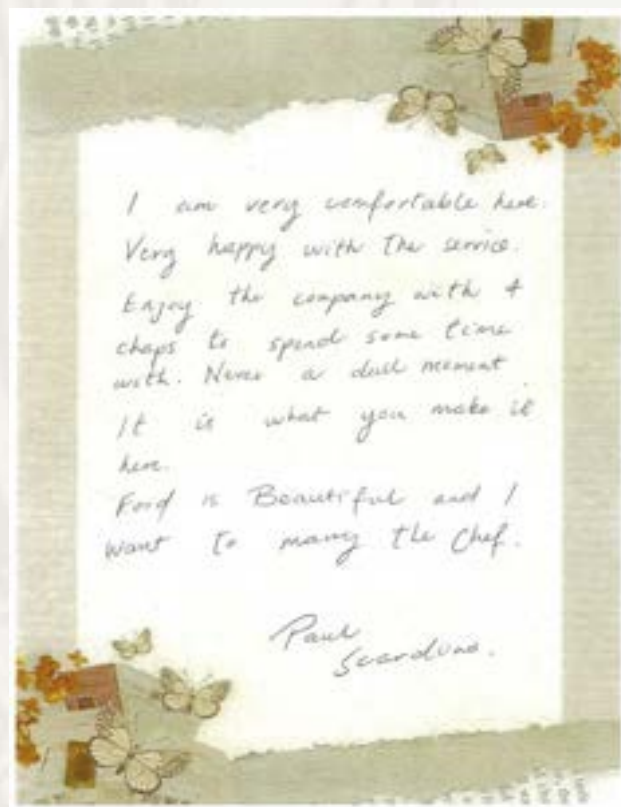 I am very comfortable here.
Very happy with the service.
Enjoy the company with 4
chaps to spend some time
with. Never a dull moment
It is what you make it
here.
Food is Beautiful and I
want to marry the Chef.
Paul